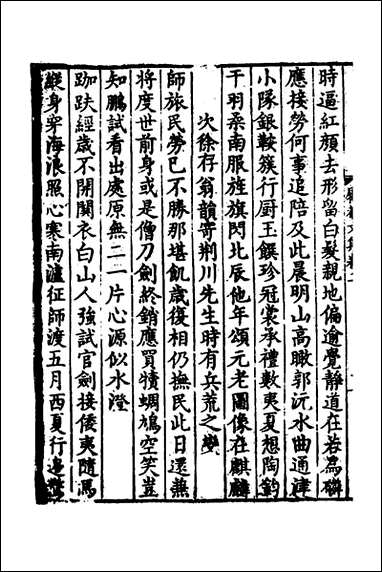 時逼紅顏去形留白髮親地偏逾覺靜道在若爲磷
應接勞何事追陪及此晨明山高瞰郭沅水曲通津
小隊銀鞍簇行厨玉饌珍冠裳承禮數夷夏想陶鈞
干羽柔南服旌旗閃北辰他年頌元老圖像在麒麟
次徐存翁韻寄荆川先生時有兵荒之變
師旅民勞已不勝那堪飢歲復相仍撫民此日還兼
将度世前身或是僧刀劍終銷應買犢蜩鳩空笑豈
知鵬試看出處原無二一片心源似水澄
跏趺經歳不開關衣白山人強試官劍接倭夷隨馬
縱身穿海浪照心寒南瀘征師渡五月西夏行邊